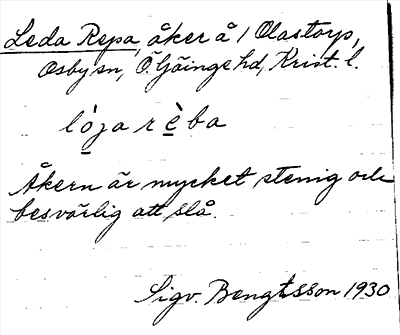 Leda Repa, åker å 1 Olastorp,
Osby sn, Ö. Göinge hd, Krist. l.
lòjarèba
Åkern är mycket stenig och
besvärlig att slå.
Sigv. Bengtsson 1930